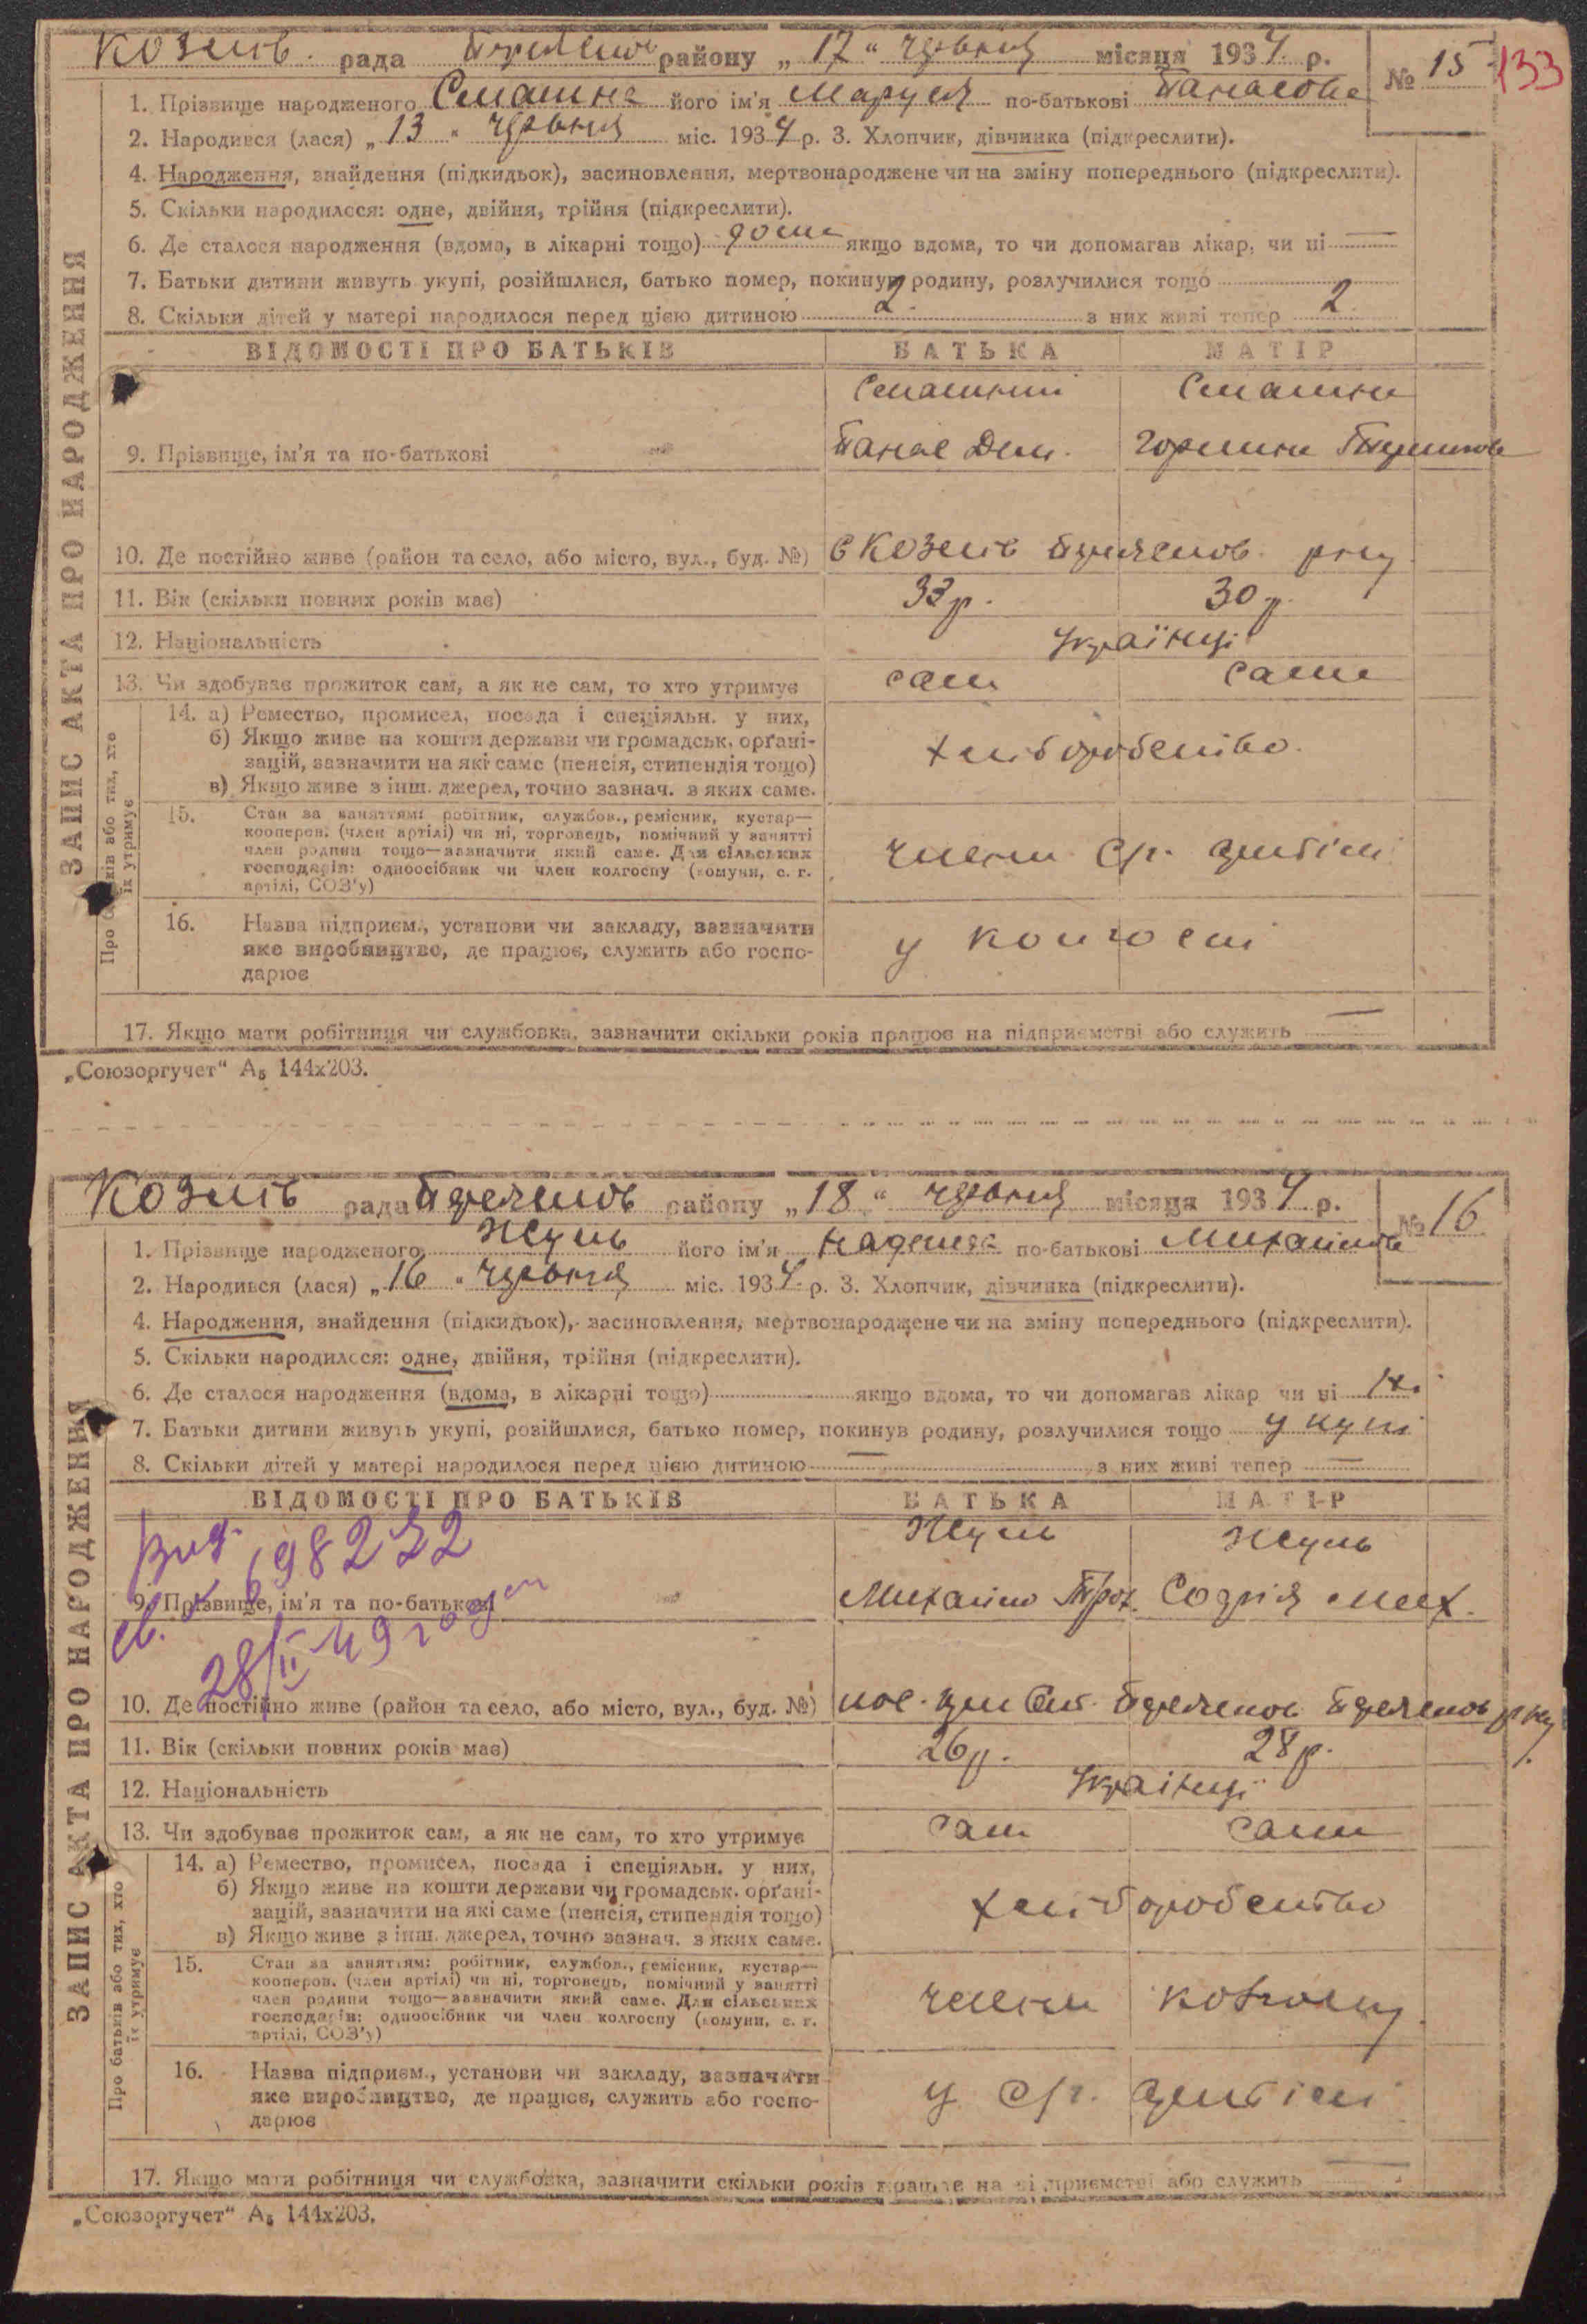 рада району „ 17 “ червня місяця 1934 р. № 15 133
1. Прізвище народженого його ім'я Маруся по-батькові Панасовна
2. Народився (лася) „ 13 “ червня міс. 1934 р. 3. Хлопчик, дівчинка (підкреслити).
4. Народження, знайдення (підкидьок), засиновлення, мертвонароджене чи на зміну попереднього (підкреслити).
5. Скільки народилося: одне, двійня, трійня (підкреслити).
6. Де сталося народження (вдома, в лікарні тощо) дома якщо вдома, то чи допомагав лікар, чи ні —
7. Батьки дитини живуть укупі, розійшлися, батько помер, покинув родину, розлучилися тощо
8. Скільки дітей у матері народилося перед цією дитиною 2 з них живі тепер 2
ЗАПИС АКТА ПРО НАРОДЖЕННЯ
ВІДОМОСТІ ПРО БАТЬКІВ БАТЬКА МАТІР
9. Прізвище, ім'я та по-батькові Панас Дем.
10. Де постійно живе (район та село, або місто, вул., буд. №) р-ну
11. Вік (скільки повних років має) 33 р. 30 р.
12. Національність Українці
13. Чи здобуває прожиток сам, а як не сам, то хто утримує сам сама
Про батьків або тих, хто їх утримує
14. а) Ремество, промисел, посада і спеціяльн. у них,
б) Якщо живе на кошти держави чи громадськ. орґані-
зацій, зазначити на які саме (пенсія, стипендія тощо)
в) Якщо живе з інш. джерел, точно зазнач. з яких саме.
хліборобство.
15. Стан за заняттям: робітник, службов., ремісник, кустар—
кооперов. (член артілі) чи ні, торговець, помічний у занятті
член родини тощо—зазначити який саме. Для сільських
господарів: одноосібник чи член колгоспу (комуни, с. г.
артілі, СОЗ'у)
члени с/г. артілі
16. Назва підприєм., установи чи закладу, зазначити
яке виробництво, де працює, служить або госпо-
дарює
у колгоспі
17. Якщо мати робітниця чи службовка, зазначити скільки років працює на підприємстві або служить —
„Союзоргучет“ А5 144х203.
рада району „ 18 “ червня місяця 1934 р. № 16
1. Прізвище народженого Жуль його ім'я по-батькові Михайловна
2. Народився (лася) „ 16 “ червня міс. 1934 р. 3. Хлопчик, дівчинка (підкреслити).
4. Народження, знайдення (підкидьок), засиновлення, мертвонароджене чи на зміну попереднього (підкреслити).
5. Скільки народилося: одне, двійня, трійня (підкреслити).
6. Де сталося народження (вдома, в лікарні тощо) якщо вдома, то чи допомагав лікар чи ні
7. Батьки дитини живуть укупі, розійшлися, батько помер, покинув родину, розлучилися тощо укупі
8. Скільки дітей у матері народилося перед цією дитиною — з них живі тепер —
ЗАПИС АКТА ПРО НАРОДЖЕННЯ
ВІДОМОСТІ ПРО БАТЬКІВ БАТЬКА МАТІР
Жуль Жуль
9. Прізвище, ім'я та по-батькові Михайло Трох. Софія Мих.
28/II 49
10. Де постійно живе (район та село, або місто, вул., буд. №) р-ну
11. Вік (скільки повних років має) 26 р. 28 р.
12. Національність Українці
13. Чи здобуває прожиток сам, а як не сам, то хто утримує сам сама
Про батьків або тих, хто їх утримує
14. а) Ремество, промисел, посада і спеціяльн. у них,
б) Якщо живе на кошти держави чи громадськ. орґані-
зацій, зазначити на які саме (пенсія, стипендія тощо)
в) Якщо живе з інш. джерел, точно зазнач. з яких саме.
хліборобство
15. Стан за заняттям: робітник, службов., ремісник, кустар—
кооперов. (член артілі) чи ні, торговець, помічний у занятті
член родини тощо—зазначити який саме. Для сільських
господарів: одноосібник чи член колгоспу (комуни, с. г.
артілі, СОЗ'у)
члени
16. Назва підприєм., установи чи закладу, зазначити
яке виробництво, де працює, служить або госпо-
дарює
у с/г. артілі
17. Якщо мати робітниця чи службовка, зазначити скільки років працює на підприємстві або служить —
„Союзоргучет“ А5 144х203.